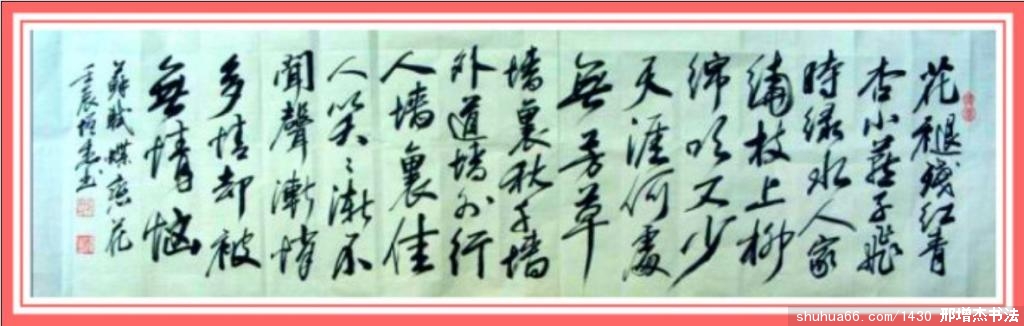 花褪残红青
杏小燕子飛
時緑水人家
繞枝上柳
綿吹又少
天涯何處
無芳草
墙裏秋千墙
外道墙外行
人墙裏佳
人笑〻漸不
聞聲漸悄
多情却被
無情恼
蘇軾蝶恋花
壬辰增杰书
shuhua66.com/1430 邢增杰书法